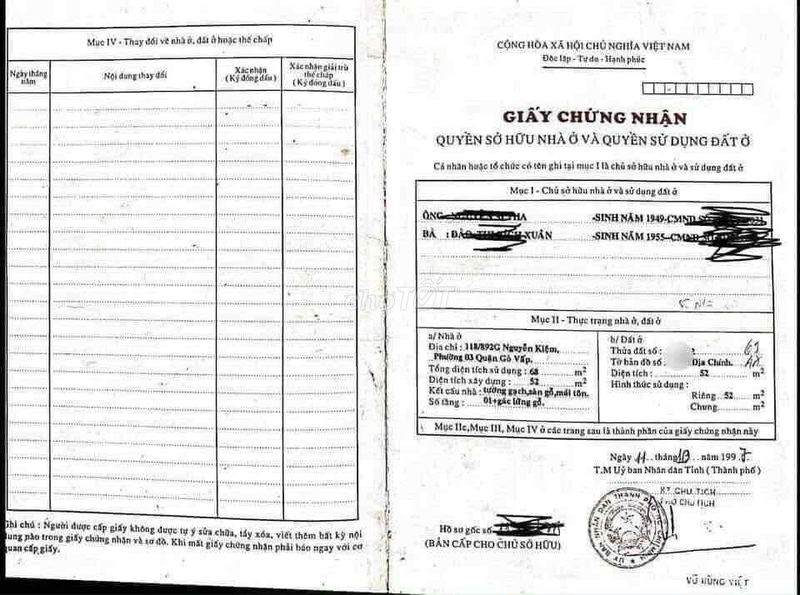 Mục IV - Thay đổi về nhà ở, đất ở hoặc thế chấp
Ngày tháng năm
Nội dung thay đổi
Xác nhận (Ký đóng dấu)
Xác nhận giải trừ thế chấp (Ký đóng dấu)
Ghi chú : Người được cấp giấy không được tự ý sửa chữa, tẩy xóa, viết thêm bất kỳ nội
dung nào trong giấy chứng nhận và sơ đồ. Khi mất giấy chứng nhận phải báo ngay với cơ
quan cấp giấy.
CỘNG HÒA XÃ HỘI CHỦ NGHĨA VIỆT NAM
Độc lập - Tự do - Hạnh phúc
GIẤY CHỨNG NHẬN
QUYỀN SỞ HỮU NHÀ Ở VÀ QUYỀN SỬ DỤNG ĐẤT Ở
Cá nhân hoặc tổ chức có tên ghi tại mục I là chủ sở hữu nhà ở và sử dụng đất ở
Mục I - Chủ sở hữu nhà ở và sử dụng đất ở
ÔNG -SINH NĂM 1949-CMND
BÀ : XUÂN -SINH NĂM 1955-CMND
Mục II - Thực trạng nhà ở, đất ở
a/ Nhà ở
Địa chỉ : 118/892G Nguyễn Kiệm,
Phường 03 Quận Gò Vấp.
Tổng diện tích sử dụng : 68 m2
Diện tích xây dựng : 52 m2
Kết cấu nhà : tường gạch,sàn gỗ,mái tôn.
Số tầng : 01+gác lửng gỗ.
b/ Đất ở
Thửa đất số : 61
Tờ bản đồ số : Địa Chính.
Diện tích : 52 m2
Hình thức sử dụng :
Riêng 52 m2
Chung m2
Mục IIc,Mục III, Mục IV ở các trang sau là thành phần của giấy chứng nhận này
Ngày 11 tháng năm 1997
T.M Uỷ ban Nhân dân Tỉnh ( Thành phố )
KT CHỦ TỊCH
PHÓ CHỦ TỊCH
Hồ sơ gốc số
(BẢN CẤP CHO CHỦ SỞ HỮU)
VŨ HÙNG VIỆT
chợTỐT